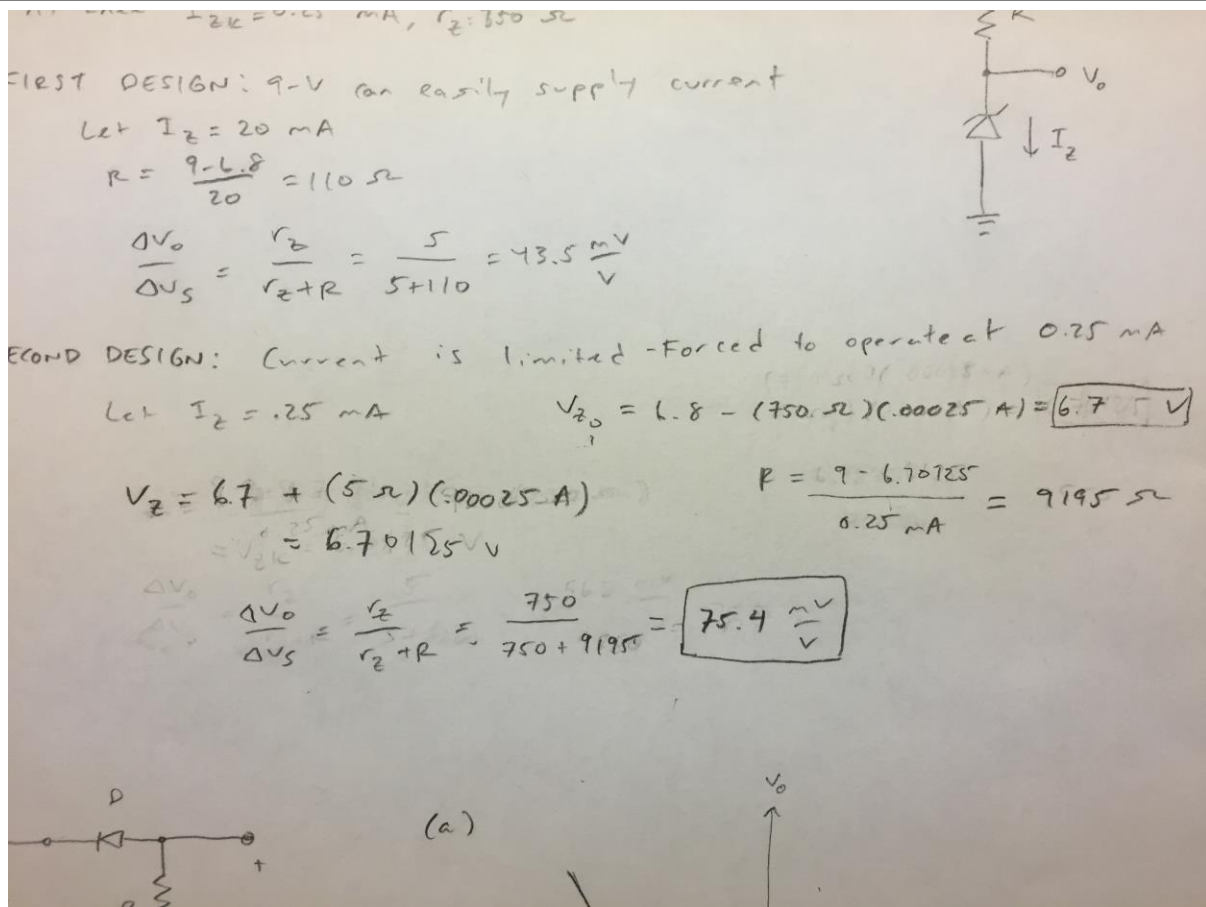 I_ZK = 0.25 mA, r_z = 750 Ω
R
FIRST DESIGN: 9-V can easily supply current
V_o
Let I_z = 20 mA
I_z
R = (9-6.8)/20 = 110 Ω
ΔV_o/ΔV_S = r_z/(r_z+R) = 5/(5+110) = 43.5 mV/V
ECOND DESIGN: Current is limited - Forced to operate at 0.25 mA
Let I_z = .25 mA
V_zo = 6.8 - (750 Ω)(.00025 A) = 6.7 V
V_z = 6.7 + (5 Ω)(.00025 A)
= 6.70125 V
R = (9 - 6.70125)/(0.25 mA) = 9195 Ω
ΔV_o/ΔV_S = r_z/(r_z+R) = 750/(750+9195) = 75.4 mV/V
D
(a)
V_o
+